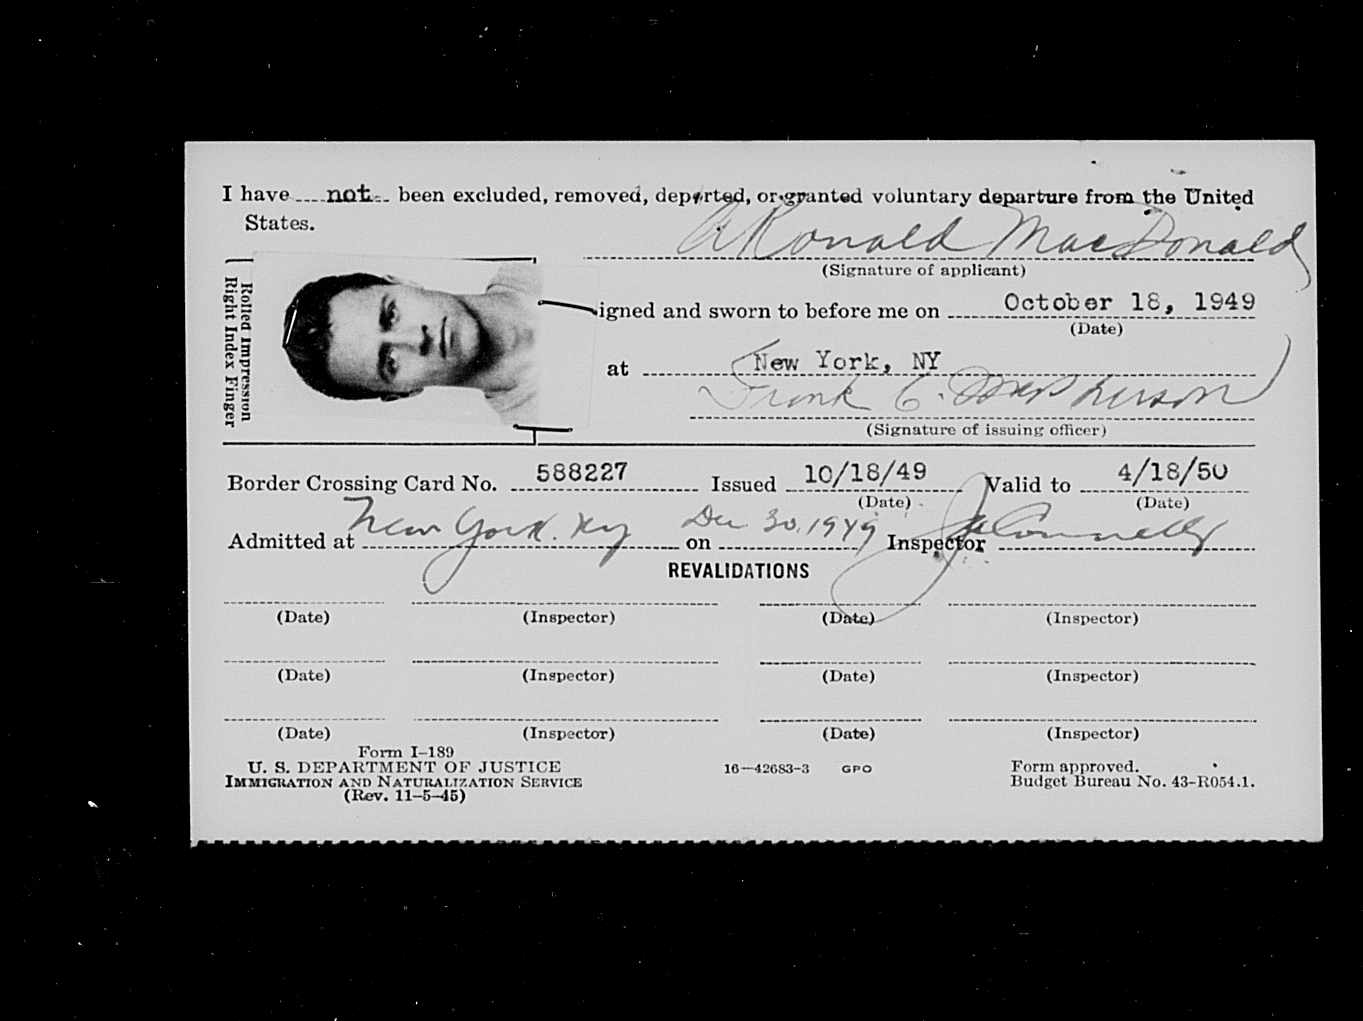 I have not been excluded, removed, deported, or granted voluntary departure from the United
States.
A Ronald MacDonald
(Signature of applicant)
Rolled Impression
Right Index Finger
igned and sworn to before me on October 18, 1949
(Date)
at New York, NY
Frank C. MacPherson
(Signature of issuing officer)
Border Crossing Card No. 588227 Issued 10/18/49 Valid to 4/18/50
(Date) (Date)
Admitted at New York. Ny on Dec 30, 1949 Inspector Connelly
REVALIDATIONS
(Date) (Inspector) (Date) (Inspector)
(Date) (Inspector) (Date) (Inspector)
(Date) (Inspector) (Date) (Inspector)
Form I-189
U. S. DEPARTMENT OF JUSTICE 16—42683-3 GPO Form approved.
IMMIGRATION AND NATURALIZATION SERVICE Budget Bureau No. 43-R054.1.
(Rev. 11-5-45)